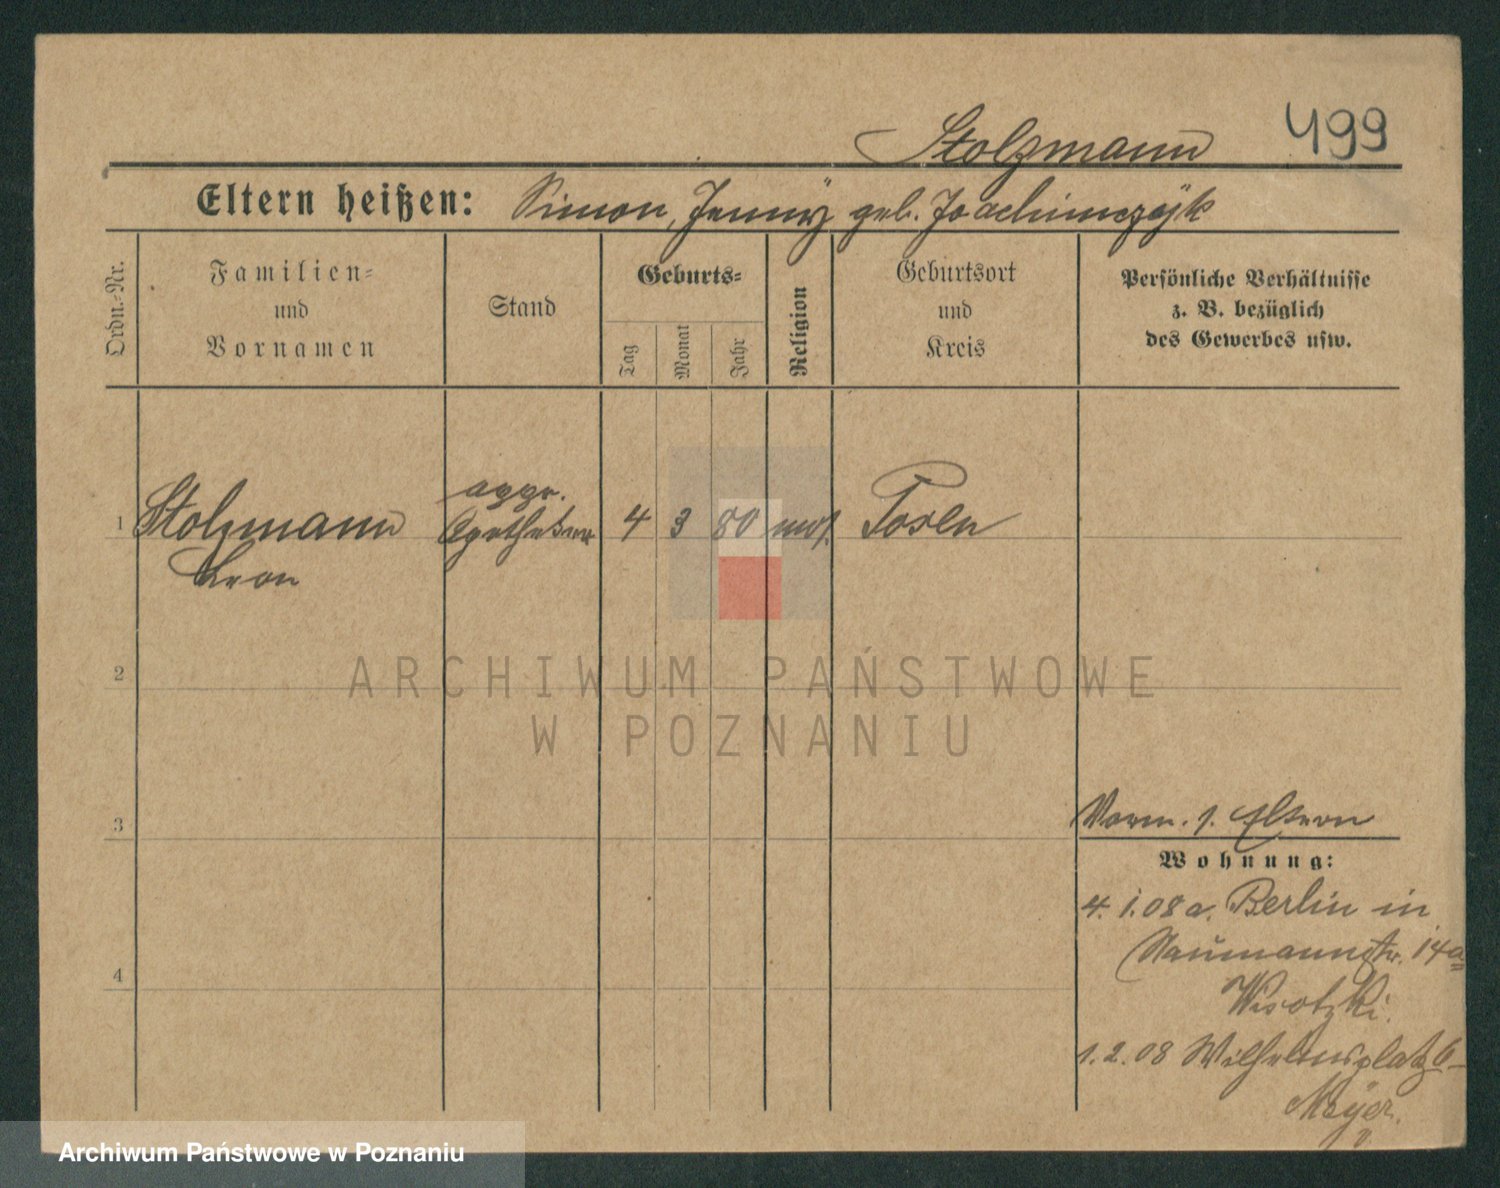 Stolzmann 499
Eltern heißen: Simon, Jenny geb. Joachimczyk
Ordn.-Nr.
Familien-
und
Vornamen
Stand
Geburts-
Tag
Monat
Jahr
Religion
Geburtsort
und
Kreis
Persönliche Verhältnisse
z. B. bezüglich
des Gewerbes usw.
1 Stolzmann appr. 4 3 80 mos. Posen
Leon Apotheker
2
3
4
Vorm. s. Eltern
Wohnung:
4. 1. 08 a. Berlin in
Naumannstr. 14a
Wisotzki.
1. 2. 08 Wilhelmsplatz 6
Meyer.
ARCHIWUM PAŃSTWOWE
W POZNANIU
Archiwum Państwowe w Poznaniu